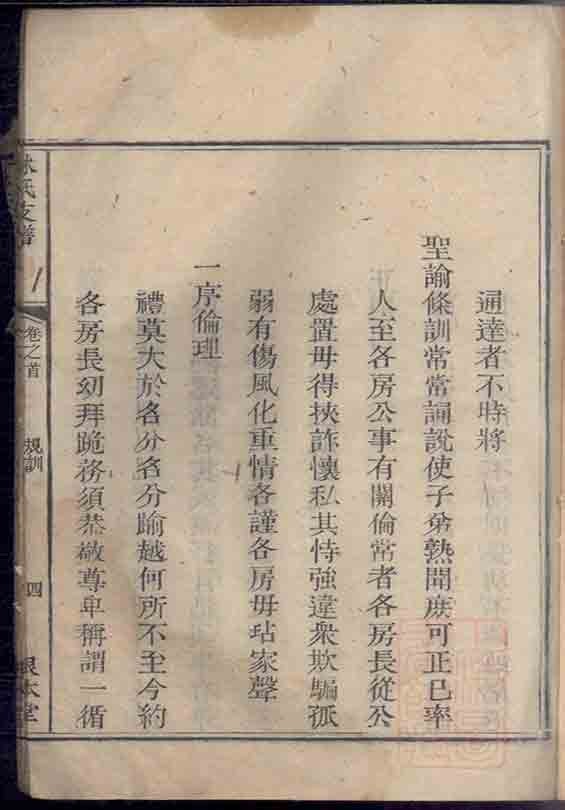 通達者不時將
聖諭條訓常常誦說使子弟熟聞庶可正己率
人至各房公事有關倫常者各房長從公
處置毋得挾詐懷私其恃強違衆欺騙孤
弱有傷風化重情各謹各房毋玷家聲
一序倫理
禮莫大於名分名分踰越何所不至今約
各房長幼拜跪務須恭敬尊卑稱謂一循
林氏支譜
卷之首
規訓
四
本堂